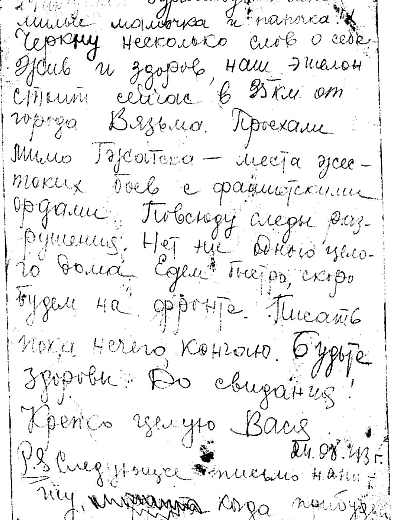 милые мамочка и папочка!
Черкну несколько слов о себе
Жив и здоров, наш эшелон
стоит сейчас в 35 км от
города Вязьма. Проехали
мимо Гжатска — места жес-
токих боев с фашистскими
ордами. Повсюду следы раз-
рушения. Нет ни одного цело-
го дома. Едем быстро, скоро
будем на фронте. Писать
пока нечего, кончаю. Будьте
здоровы. До свидания!
Крепко целую Вася
24.03.43 г.
P.S Следующее письмо напи-
шу, когда прибудем